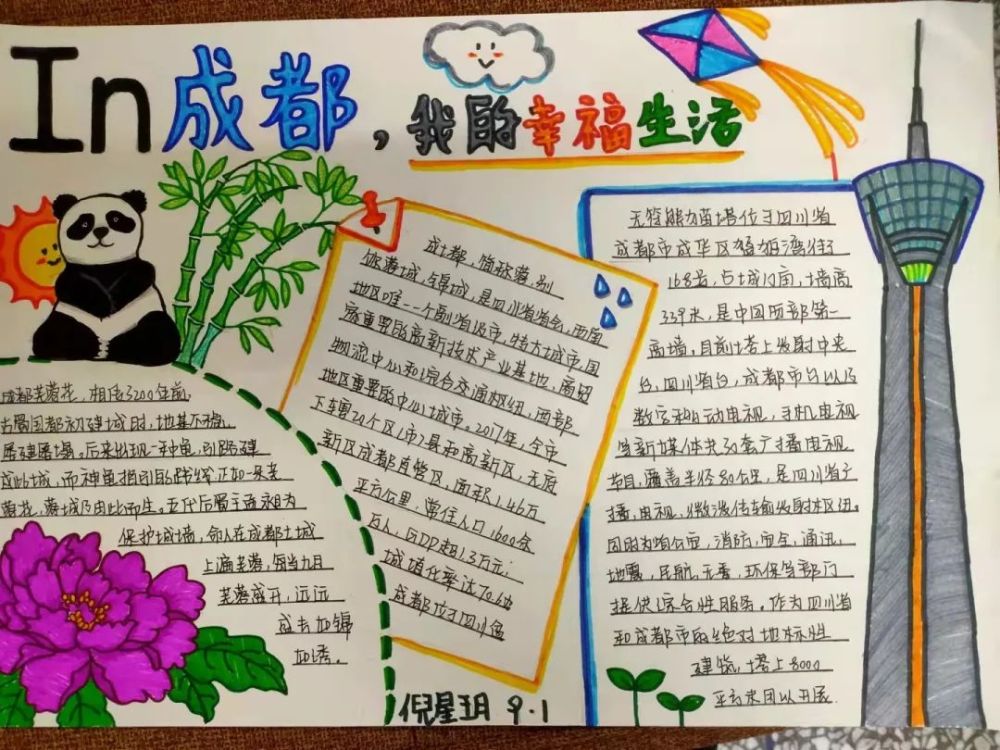 In成都，我的幸福生活
成都芙蓉花，相传3200年前，
古蜀国都初建城时，地基不稳，
屡建屡塌。后来出现一神龟，引路建
成此城，而神龟指引的路线正如一朵芙
蓉花，蓉城乃由此而生。五代后蜀主孟永因为
保护城墙，命人在成都土城
上遍芙蓉，每当九月
芙蓉盛开，远远
盛去如锦
如诱。
成都，简称蓉，别
称蓉城，锦城，是四川省省会，西南
地区唯一一个副省级市，特大城市，国
家重要的高新技术产业基地，商贸
物流中心和综合交通枢纽，西部
地区重要的中心城市。2017年，全市
下车要20个区(市)县和高新区，天府
新区成都直管区，面积1.46万
平方公里，常住人口1600余
万人，GDP超1.3万元；
城镇化率达70.6%
成都位于四川盆
无线电力苗塔位于四川省
成都市成华区猛追湾街
168号，占域门亩，塔高
339米，是中国西部第一
高塔，目前塔上发射中央
台，四川省台，成都市台以及
数字和移动电视，手机电视
等新媒体共30套广播电视
节目，覆盖半径80公里，是四川省广
播，电视，微波传输发射枢纽。
同时为省公安，消防，安全，通讯，
地震，民航，无委，环保等部门
提供综合性服务。作为四川省
和成都市的绝对地标性
建筑，塔上8000
平方米因以开展
倪星玥 9.1